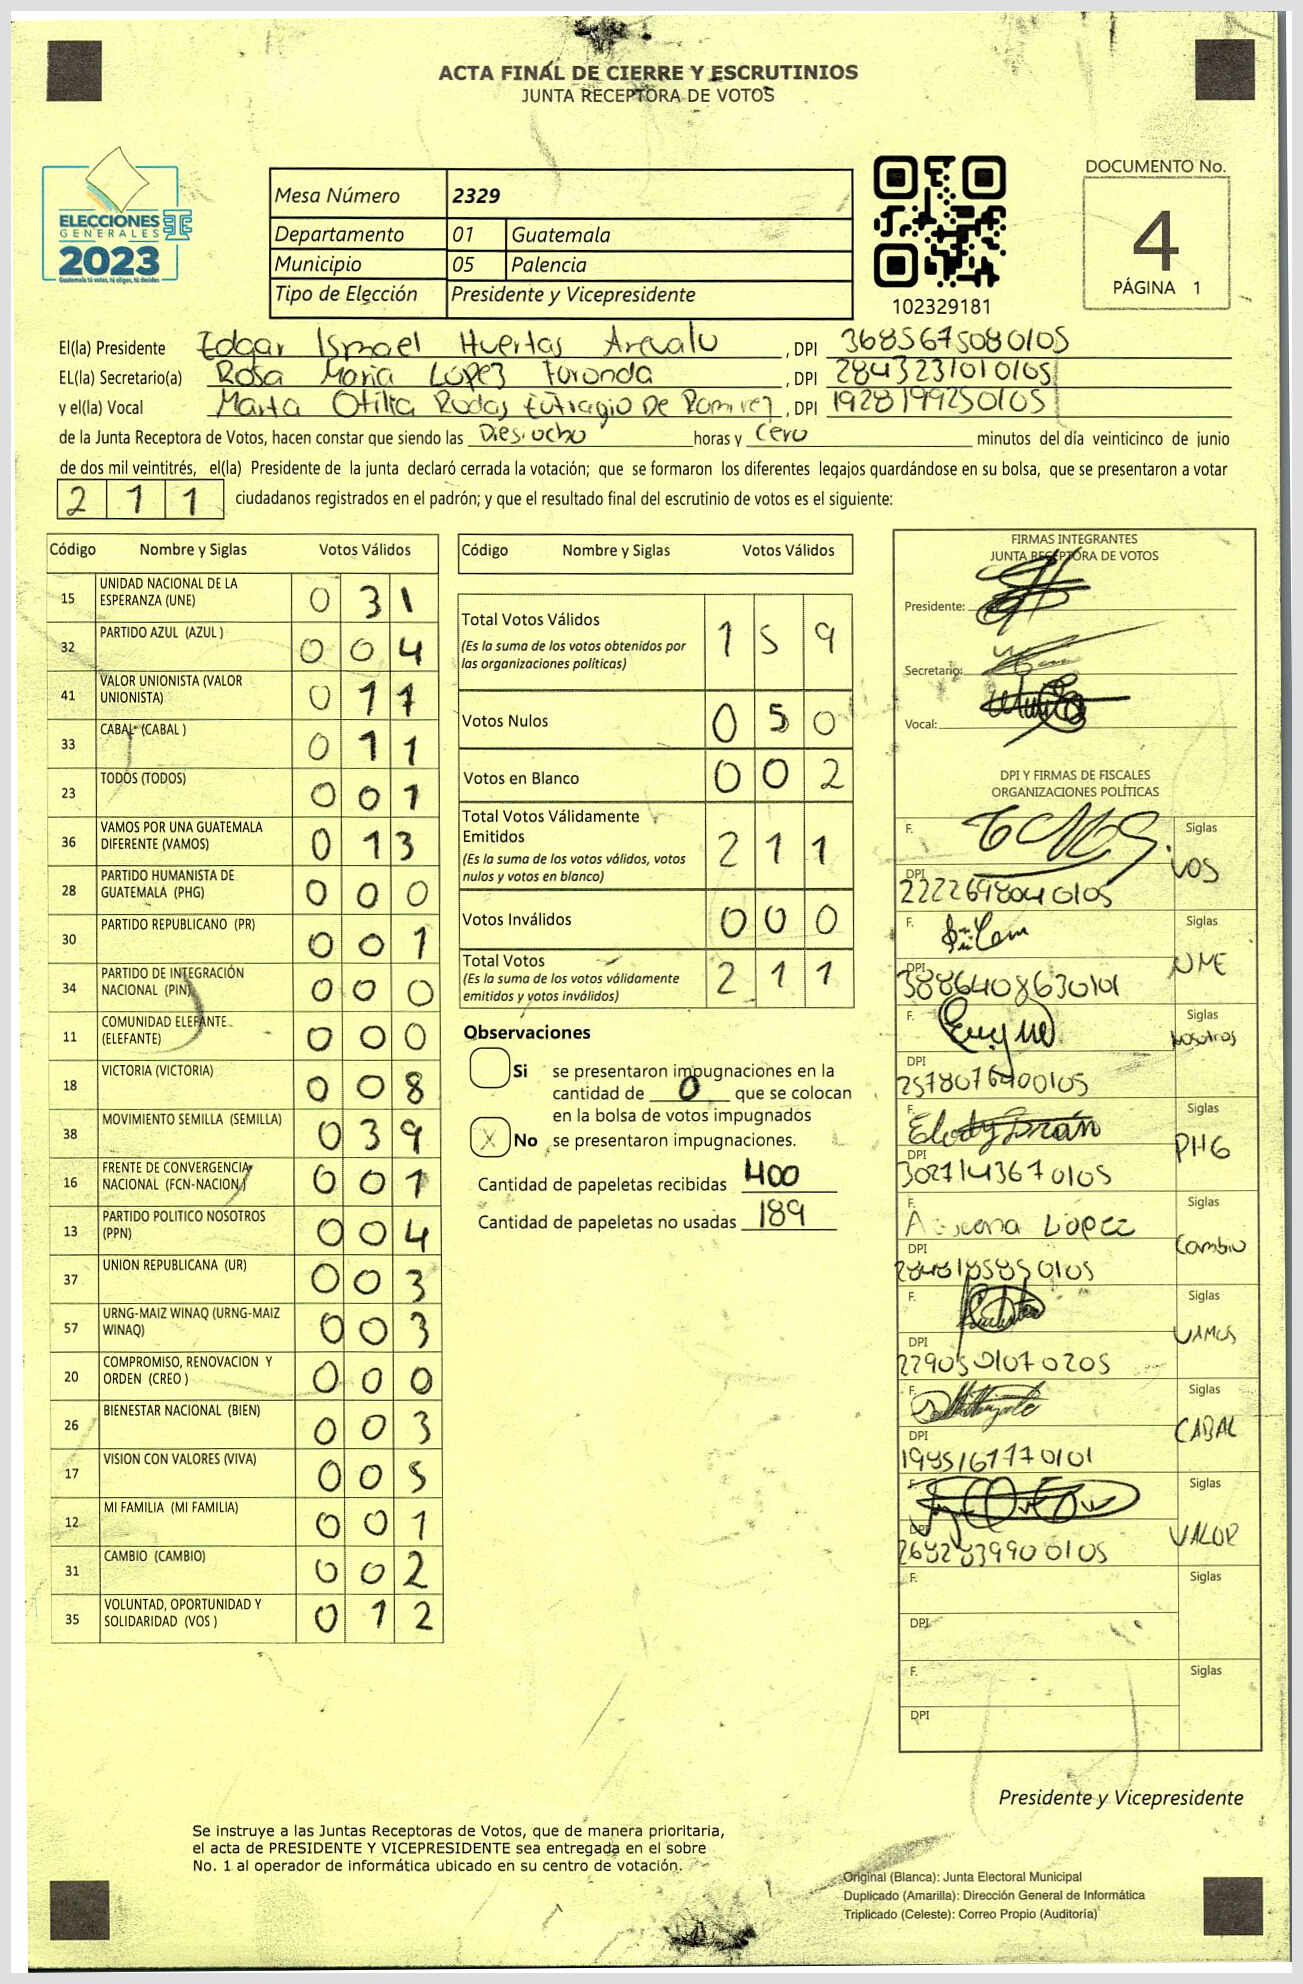 ACTA FINAL DE CIERRE Y ESCRUTINIOS
JUNTA RECEPTORA DE VOTOS
ELECCIONES
GENERALES
2023
Guatemala tú votas, tú eliges, tú decides
Mesa Número 2329
Departamento 01 Guatemala
Municipio 05 Palencia
Tipo de Elección Presidente y Vicepresidente
102329181
DOCUMENTO No.
4
PÁGINA 1
El(la) Presidente Edgar Ismael Huertas Arevalo, DPI 3685675080105
EL(la) Secretario(a) Rosa Maria López, DPI 2843231010105
y el(la) Vocal Marta Otilia Rodas De Ramirez, DPI 1928199250105
de la Junta Receptora de Votos, hacen constar que siendo las Diesiocho horas y Cero minutos del día veinticinco de junio
de dos mil veintitrés, el(la) Presidente de la junta declaró cerrada la votación; que se formaron los diferentes legajos guardándose en su bolsa, que se presentaron a votar
2 1 1 ciudadanos registrados en el padrón; y que el resultado final del escrutinio de votos es el siguiente:
Código Nombre y Siglas Votos Válidos
15 UNIDAD NACIONAL DE LA ESPERANZA (UNE) 0 3 1
32 PARTIDO AZUL (AZUL ) 0 0 4
41 VALOR UNIONISTA (VALOR UNIONISTA) 0 1 1
33 CABAL (CABAL ) 0 1 1
23 TODOS (TODOS) 0 0 1
36 VAMOS POR UNA GUATEMALA DIFERENTE (VAMOS) 0 1 3
28 PARTIDO HUMANISTA DE GUATEMALA (PHG) 0 0 0
30 PARTIDO REPUBLICANO (PR) 0 0 1
34 PARTIDO DE INTEGRACIÓN NACIONAL (PIN) 0 0 0
11 COMUNIDAD ELEFANTE (ELEFANTE) 0 0 0
18 VICTORIA (VICTORIA) 0 0 8
38 MOVIMIENTO SEMILLA (SEMILLA) 0 3 9
16 FRENTE DE CONVERGENCIA NACIONAL (FCN-NACION ) 0 0 1
13 PARTIDO POLITICO NOSOTROS (PPN) 0 0 4
37 UNION REPUBLICANA (UR) 0 0 3
57 URNG-MAIZ WINAQ (URNG-MAIZ WINAQ) 0 0 3
20 COMPROMISO, RENOVACION Y ORDEN (CREO ) 0 0 0
26 BIENESTAR NACIONAL (BIEN) 0 0 3
17 VISION CON VALORES (VIVA) 0 0 5
12 MI FAMILIA (MI FAMILIA) 0 0 1
31 CAMBIO (CAMBIO) 0 0 2
35 VOLUNTAD, OPORTUNIDAD Y SOLIDARIDAD (VOS ) 0 1 2
Código Nombre y Siglas Votos Válidos
Total Votos Válidos 1 5 9
(Es la suma de los votos obtenidos por
las organizaciones políticas)
Votos Nulos 0 5 0
Votos en Blanco 0 0 2
Total Votos Válidamente
Emitidos 2 1 1
(Es la suma de los votos válidos, votos
nulos y votos en blanco)
Votos Inválidos 0 0 0
Total Votos 2 1 1
(Es la suma de los votos válidamente
emitidos y votos inválidos)
Observaciones
Si se presentaron impugnaciones en la
cantidad de 0 que se colocan
en la bolsa de votos impugnados
X No se presentaron impugnaciones.
Cantidad de papeletas recibidas 400
Cantidad de papeletas no usadas 189
FIRMAS INTEGRANTES
JUNTA RECEPTORA DE VOTOS
Presidente:
Secretario:
Vocal:
DPI Y FIRMAS DE FISCALES
ORGANIZACIONES POLÍTICAS
F. Siglas
DPI VOS
2222698040105
F. Siglas
DPI UNE
3886408630101
F. Siglas
Nosotros
DPI
2578076400105
F. Siglas
PHG
DPI
3027143670105
F. López Siglas
Cambio
DPI
F. Siglas
VAMOS
DPI
F. Siglas
CABAL
DPI
F. Siglas
VALOR
DPI
2682839900105
F. Siglas
DPI
F. Siglas
DPI
Presidente y Vicepresidente
Se instruye a las Juntas Receptoras de Votos, que de manera prioritaria,
el acta de PRESIDENTE Y VICEPRESIDENTE sea entregada en el sobre
No. 1 al operador de informática ubicado en su centro de votación.
Original (Blanca): Junta Electoral Municipal
Duplicado (Amarilla): Dirección General de Informática
Triplicado (Celeste): Correo Propio (Auditoría)